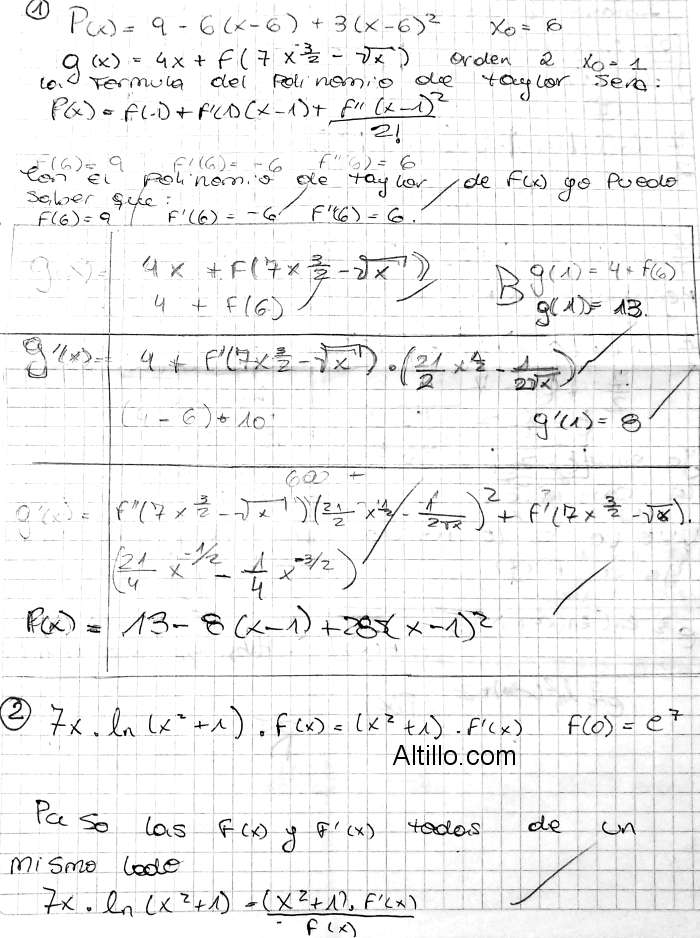 ① P(x) = 9 - 6(x-6) + 3(x-6)² x₀ = 6
g(x) = 4x + f(7x^3/2 - √x) orden 2 x₀ = 1
la formula del Polinomio de taylor sera:
P(x) = f(1) + f'(1)(x-1) + f''(x-1)²/2!
f(6) = 9 f'(6) = -6 f''(6) = 6
Con el polinomio de taylor de f(x) yo puedo
saber que:
f(6) = 9 f'(6) = -6 f''(6) = 6.
g(x) = 4x + f(7x^3/2 - √x) B g(1) = 4 + f(6)
4 + f(6) g(1) = 13.
g'(x) = 4 + f'(7x^3/2 - √x) · (21/2 x^1/2 - 1/2√x)
(4 - 6) · 10 g'(1) = 8
600 +
g'(x) = f''(7x^3/2 - √x)(21/2 x^1/2 - 1/2√x)² + f'(7x^3/2 - √x).
(21/4 x^-1/2 - 1/4 x^-3/2)
P(x) = 13 - 8(x-1) + (x-1)²
② 7x · ln(x²+1) · f(x) = (x²+1) · f'(x) f(0) = e⁷
Altillo.com
Paso las f(x) y f'(x) todas de un
mismo lado
7x · ln(x²+1) = (x²+1) · f'(x)/f(x)